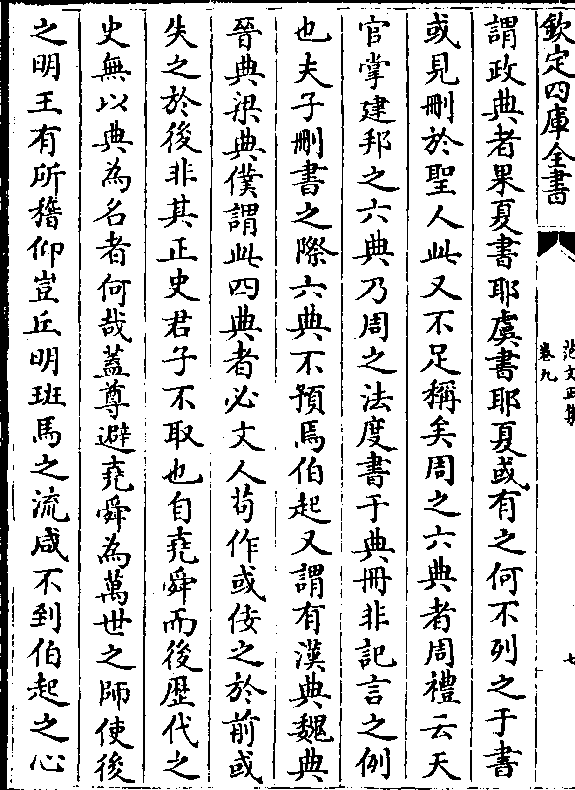 欽定四庫全書
范文正集
卷九
七
謂政典者果夏書耶虞書耶夏或有之何不列之于書
或見刪於聖人此又不足稱矣周之六典者周禮云天
官掌建邦之六典乃周之法度書于典冊非記言之例
也夫子刪書之際六典不預焉伯起又謂有漢典魏典
晉典梁典僕謂此四典者必文人茍作或佞之於前或
失之於後非其正史君子不取也自堯舜而後歴代之
史無以典為名者何哉蓋尊避堯舜為萬世之師使後
之明王有所稽仰豈丘明班馬之流咸不到伯起之心